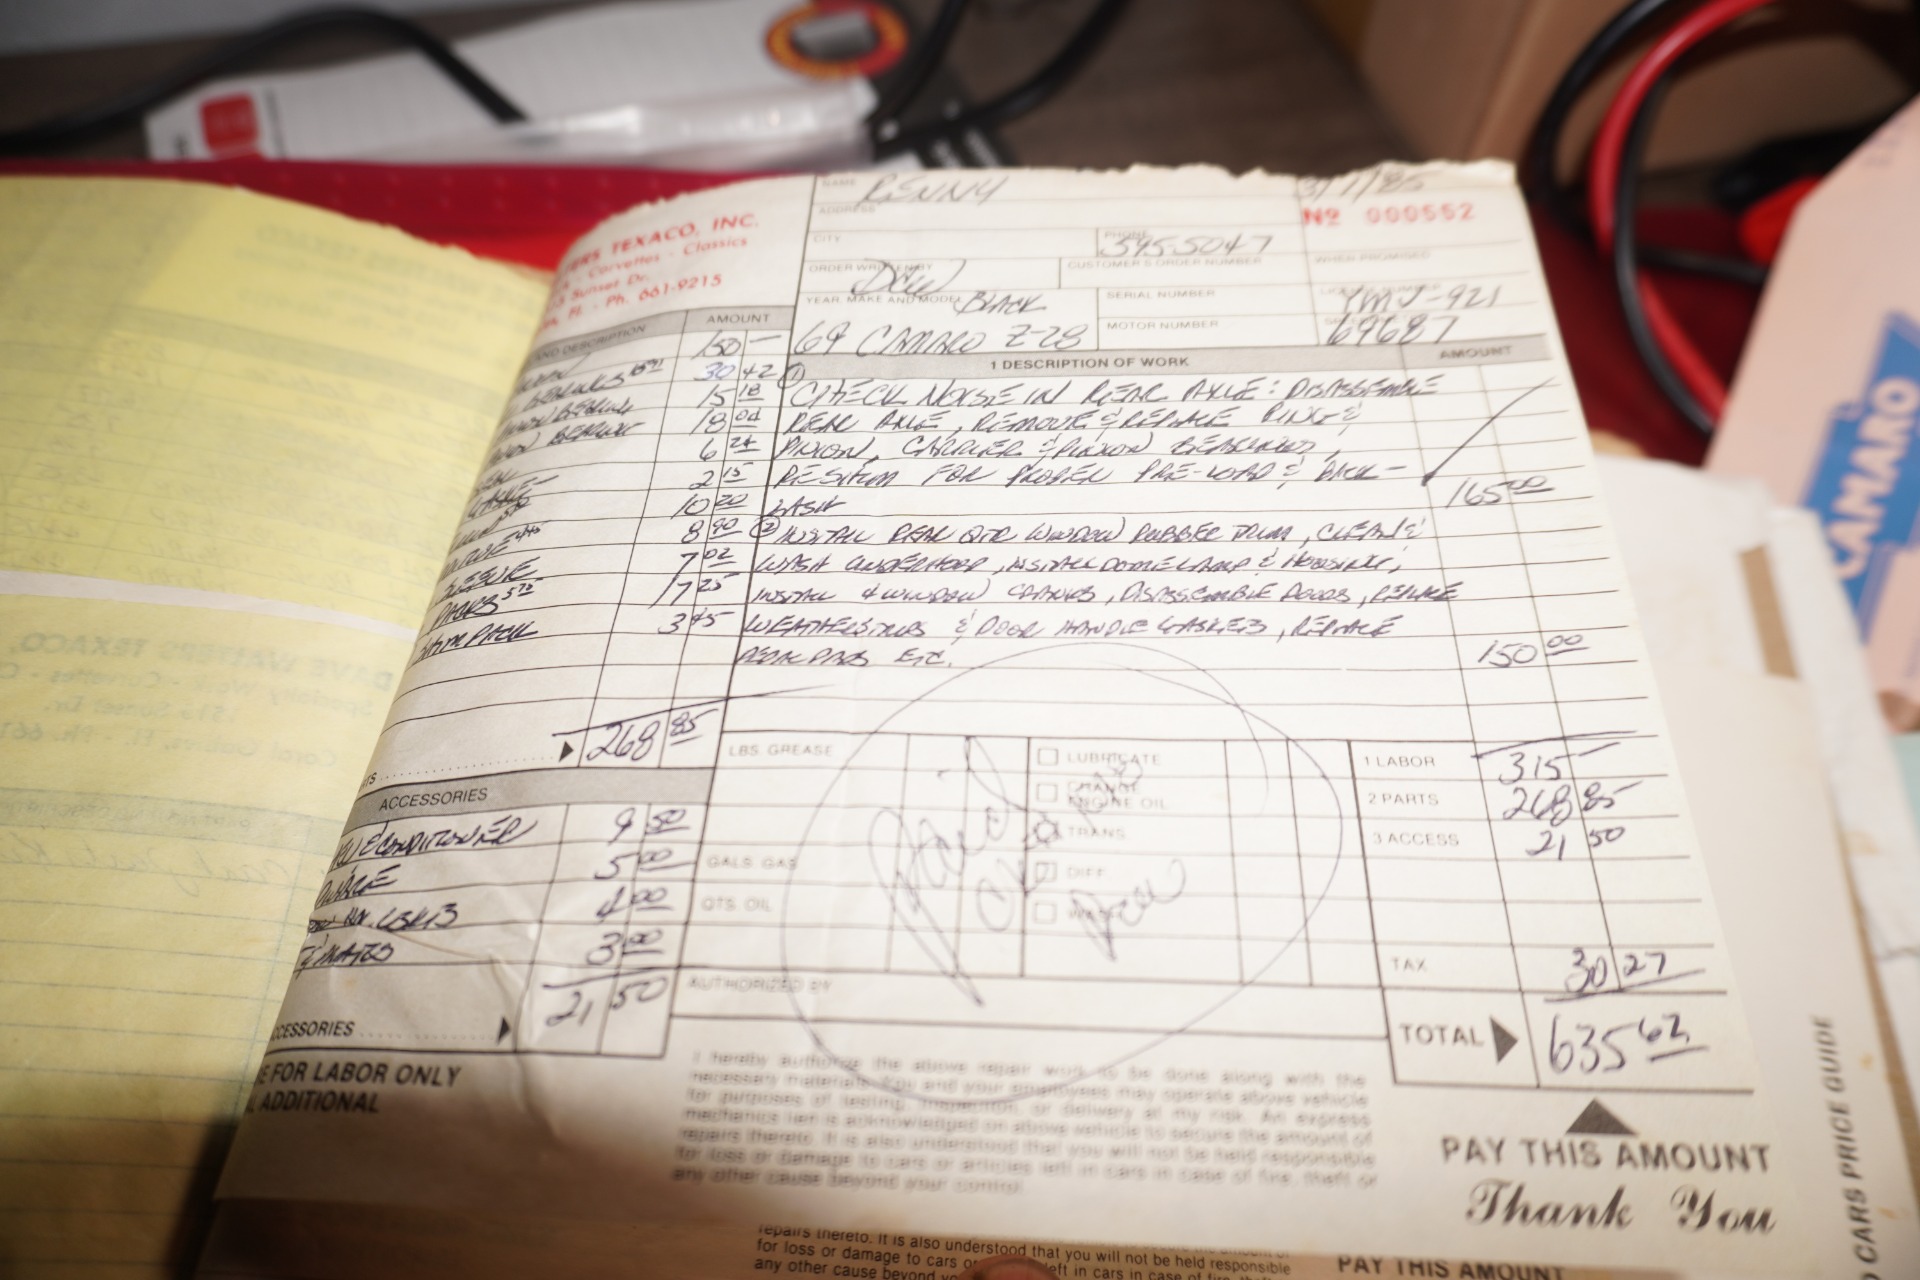 NAME
3/7/85
ADDRESS
Nº 000552
TEXACO, INC.
Corvettes - Classics
Sunset Dr.
FL - Ph. 661-9215
CITY
PHONE
595-5047
ORDER WRITTEN BY
DCW
CUSTOMER'S ORDER NUMBER
WHEN PROMISED
YEAR, MAKE AND MODEL
BLACK
SERIAL NUMBER
YMJ-921
69 CAMARO Z-28
MOTOR NUMBER
69687
AND DESCRIPTION
AMOUNT
1 DESCRIPTION OF WORK
AMOUNT
150 —
30 42
15 18
18 0
6 24
2 15
10 20
8 90
7 02
17 25
3 45
① CHECK NOISE IN REAR AXLE: DISASSEMBLE
REAR AXLE, REMOVE & REPLACE RING &
PINION, CARRIER & PINION BEARINGS,
RESHIM FOR PROPER PRE-LOAD & BACK-
LASH
165 00
② INSTALL REAR QTR WINDOW RUBBER TRIM, CLEAN &
WASH UNDERHOOD, INSTALL DOME LAMP & HOUSING,
INSTALL 4 WINDOW CRANKS, DISASSEMBLE DOORS, REPLACE
WEATHERSTRIPS & DOOR HANDLE GASKETS, REPLACE
PEDAL PADS ETC.
150 00
268 85
ACCESSORIES
& CONDITIONER 9 50
5 00
4 00
3 00
21 50
ACCESSORIES
LBS. GREASE
GALS. GAS
QTS. OIL
LUBRICATE
CHANGE
ENGINE OIL
TRANS.
DIFF.
Paid
1 LABOR 315 —
2 PARTS 268 85
3 ACCESS 21 50
TAX 30 27
AUTHORIZED BY
TOTAL 635 62
E FOR LABOR ONLY
ADDITIONAL
I hereby authorize the above repair work to be done along with the
necessary materials. You and your employees may operate above vehicle
for purposes of testing, inspection, or delivery at my risk. An express
mechanics lien is acknowledged on above vehicle to secure the amount of
repairs thereto. It is also understood that you will not be held responsible
for loss or damage to cars or articles left in cars in case of fire, theft or
any other cause beyond your control.
PAY THIS AMOUNT
Thank You
repairs thereto. It is also understood that you will not be held responsible
for loss or damage to cars or left in cars in case of
any other cause beyond
PAY THIS AMOUNT
CAMARO
CARS PRICE GUIDE
DAVE WALTERS TEXACO,
Specialty Work - Corvettes - C
Sunset Dr.
Coral Gables, Fl. - Ph. 661